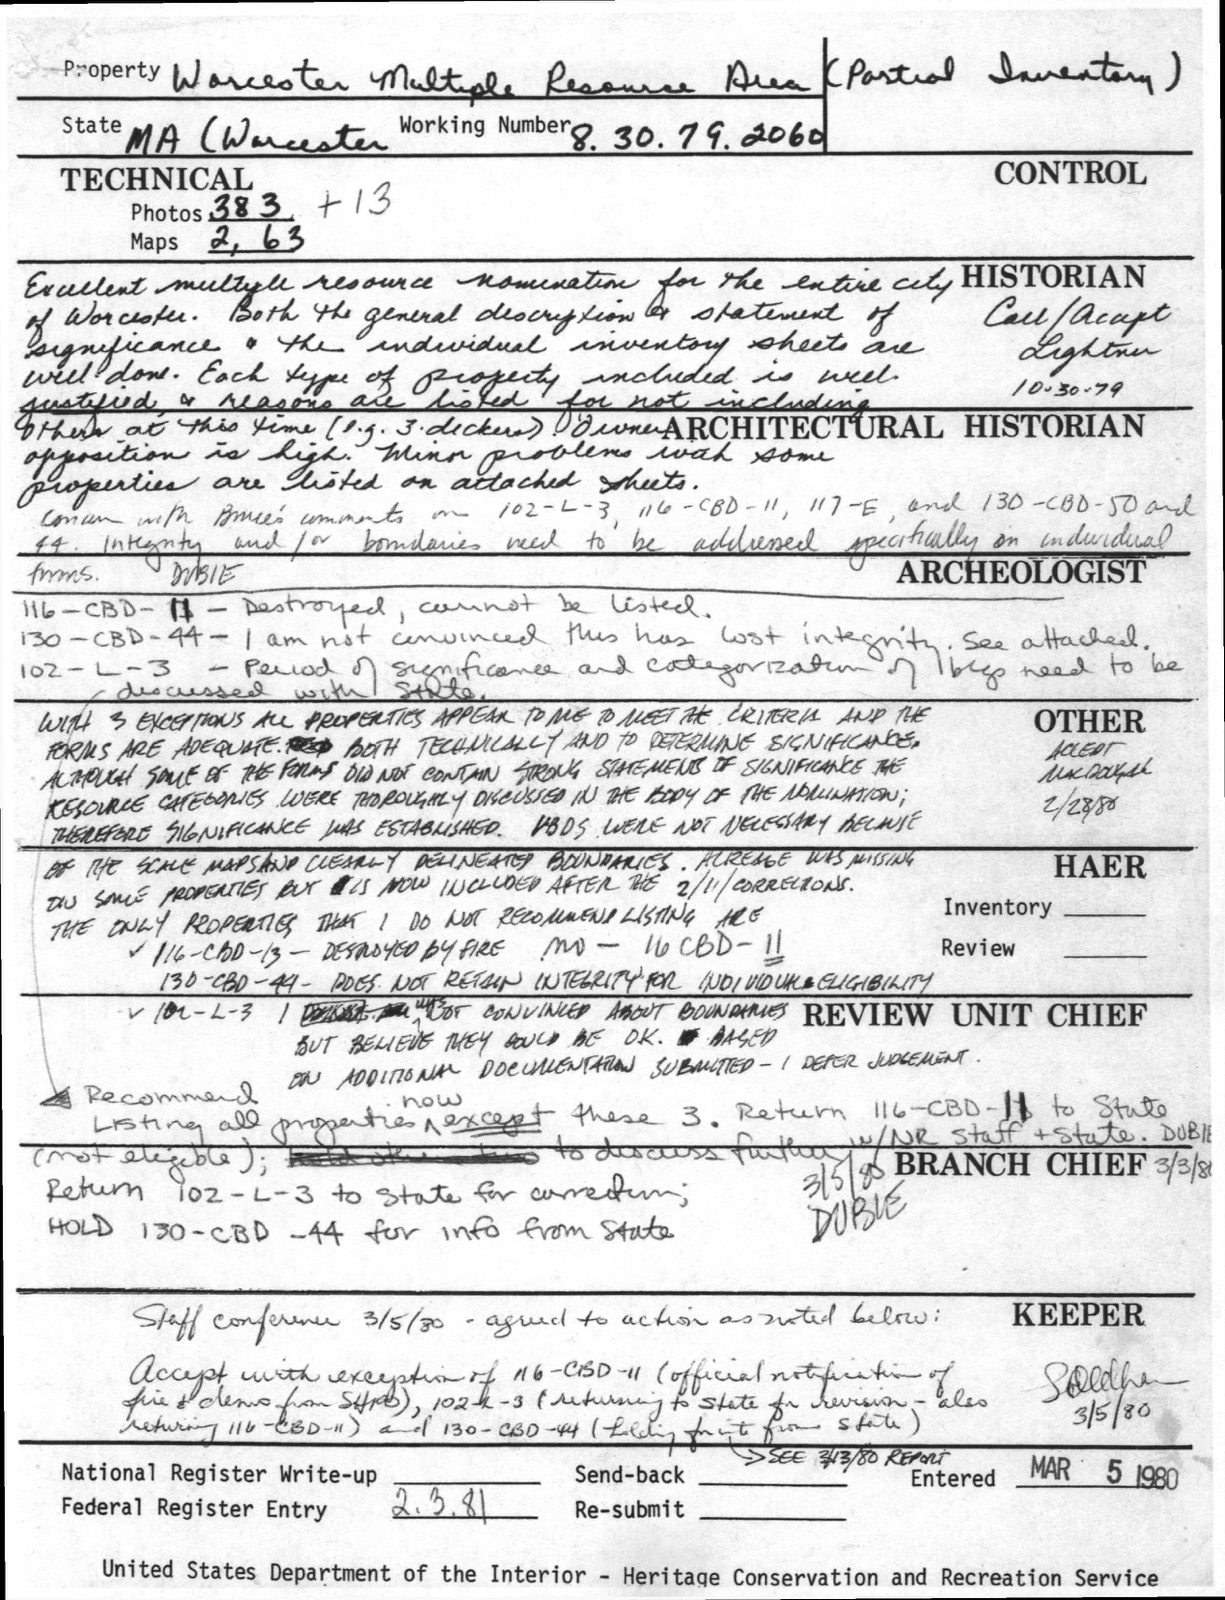 Property Worcester Multiple Resource Area (Partial Inventory)
State MA (Worcester Working Number 8.30.79.2060
TECHNICAL CONTROL
Photos 383 + 13
Maps 2, 63
Excellent multiple resource nomination for the entire city HISTORIAN
of Worcester. Both the general description & statement of Call/Accept
significance & the individual inventory sheets are Lightner
well done. Each type of property included is well 10.30.79
justified & reasons are listed for not including
others at this time (e.g. 3.deckers). Owner ARCHITECTURAL HISTORIAN
opposition is high. Minor problems with some
properties are listed on attached sheets.
Concur with Bruce's comments on 102-L-3, 116-CBD-11, 117-E, and 130-CBD-50 and
44. Integrity and/or boundaries need to be addressed specifically on individual
forms. DUBIE ARCHEOLOGIST
116-CBD-11 - Destroyed, cannot be listed.
130-CBD-44 - I am not convinced this has lost integrity. See attached.
102-L-3 - Period of significance and categorization of bldgs need to be
discussed with State.
WITH 3 EXCEPTIONS ALL PROPERTIES APPEAR TO ME TO MEET THE CRITERIA AND THE OTHER
FORMS ARE ADEQUATE. BOTH TECHNICALLY AND TO DETERMINE SIGNIFICANCE. ACCEPT
ALTHOUGH SOME OF THE FORMS DID NOT CONTAIN STRONG STATEMENTS OF SIGNIFICANCE THE MACDOUGAL
RESOURCE CATEGORIES WERE THOROUGHLY DISCUSSED IN THE BODY OF THE NOMINATION; 2/28/80
THEREFORE SIGNIFICANCE WAS ESTABLISHED. VBDS WERE NOT NECESSARY BECAUSE
OF THE SCALE MAPS AND CLEARLY DELINEATED BOUNDARIES. ACREAGE WAS MISSING HAER
ON SOME PROPERTIES BUT IS NOW INCLUDED AFTER THE 2/11/CORRECTIONS.
THE ONLY PROPERTIES THAT I DO NOT RECOMMEND LISTING ARE Inventory
✓ 116-CBD-13 - DESTROYED BY FIRE NO - 116 CBD-11 Review
130-CBD-44 - DOES NOT RETAIN INTEGRITY FOR INDIVIDUAL ELIGIBILITY
✓ 102-L-3 I WAS NOT CONVINCED ABOUT BOUNDARIES REVIEW UNIT CHIEF
BUT BELIEVE THEY COULD BE OK. BASED
ON ADDITIONAL DOCUMENTATION SUBMITTED - I DEFER JUDGEMENT.
Recommend
Listing all properties now except these 3. Return 116-CBD-11 to State
(not eligible); to discuss further w/NR staff + State. DUBIE
BRANCH CHIEF 3/3/80
Return 102-L-3 to State for correction; 3/5/80
HOLD 130-CBD-44 for info from State DUBIE
Staff conference 3/5/80 - agreed to action as noted below: KEEPER
Accept with exception of 116-CBD-11 (official notification of
fire & demo from SHPO), 102-L-3 (returning to State for revision - also
returning 116-CBD-11) and 130-CBD-44 (holding for info from State) 3/5/80
→ SEE 3/13/80 REPORT
National Register Write-up Send-back Entered MAR 5 1980
Federal Register Entry 2.3.81 Re-submit
United States Department of the Interior - Heritage Conservation and Recreation Service